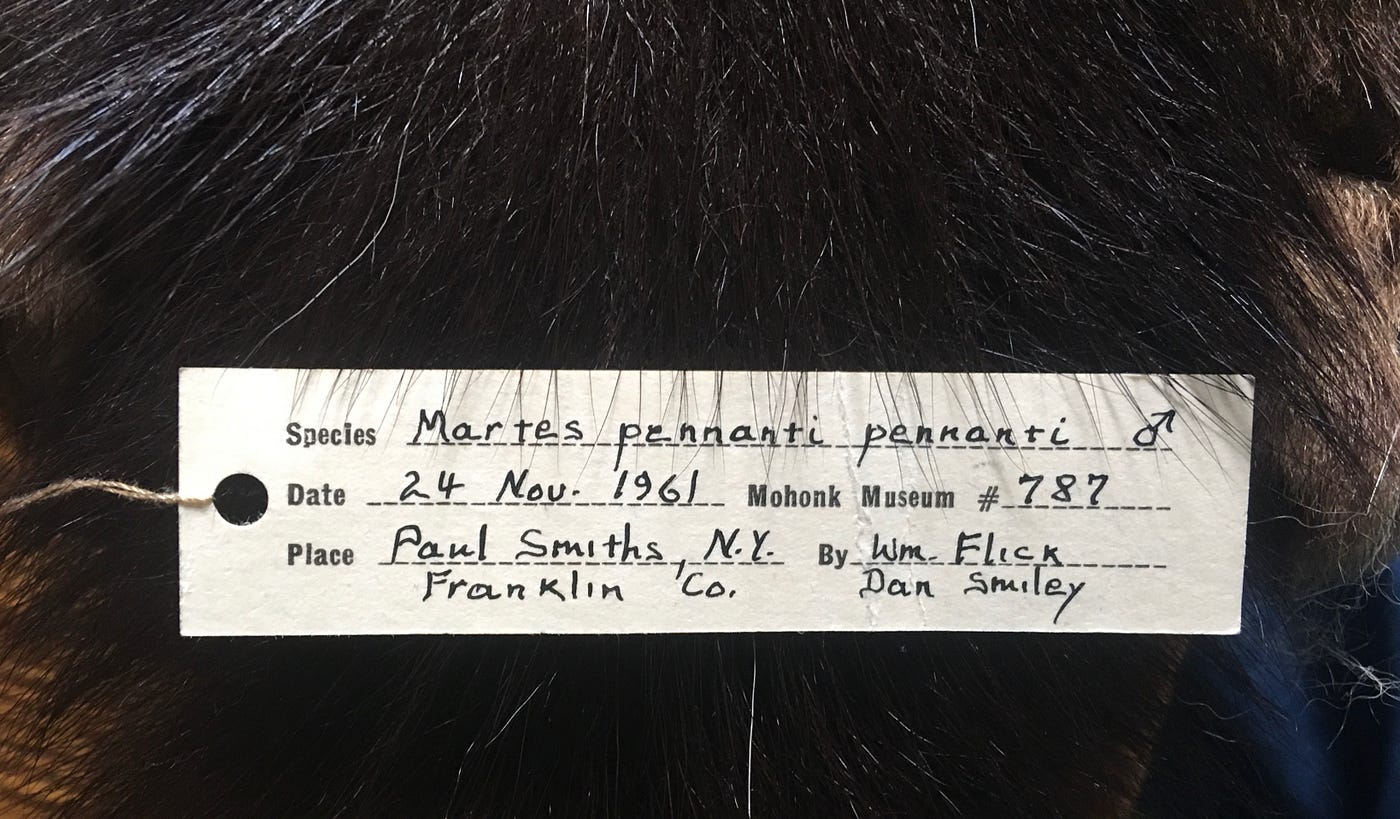 Species Martes pennanti pennanti ♂
Date 24 Nov. 1961 Mohonk Museum # 787
Place Paul Smiths, N.Y. By Wm. Flick
Franklin Co. Dan Smiley